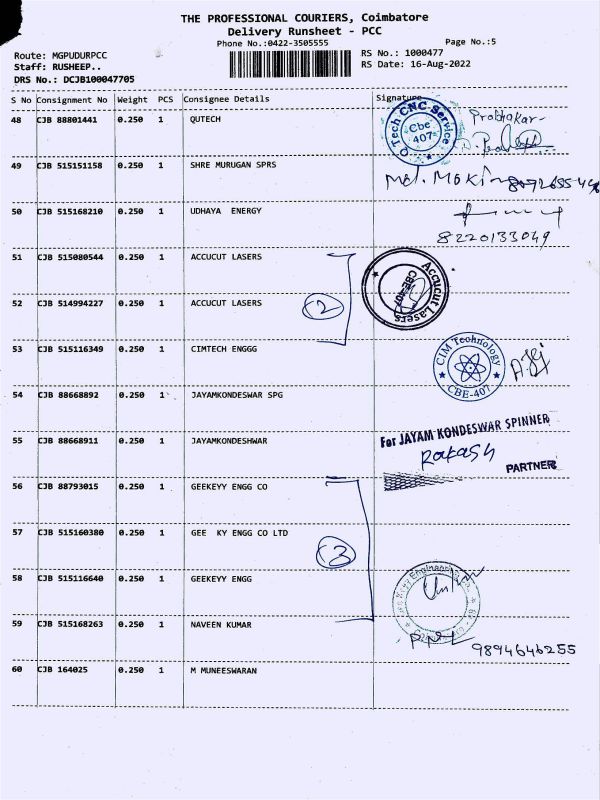 THE PROFESSIONAL COURIERS, Coimbatore
Delivery Runsheet - PCC
Phone No.:0422-3505555
Page No.:5
Route: MGPUDURPCC
RS No.: 1000477
Staff: RUSHEEP..
RS Date: 16-Aug-2022
DRS No.: DCJB100047705
S No Consignment No Weight PCS Consignee Details Signature
48 CJB 88801441 0.250 1 QUTECH
Q Tech CNC Service
Cbe
407
Prabhakar
49 CJB 515151158 0.250 1 SHRE MURUGAN SPRS
Md.
50 CJB 515168210 0.250 1 UDHAYA ENERGY
8220133049
51 CJB 515080544 0.250 1 ACCUCUT LASERS
Accucut Lasers
CBE-407
52 CJB 514994227 0.250 1 ACCUCUT LASERS
2
53 CJB 515116349 0.250 1 CIMTECH ENGGG
CIM Technology
CBE-407
54 CJB 88668892 0.250 1 JAYAMKONDESWAR SPG
55 CJB 88668911 0.250 1 JAYAMKONDESHWAR
For JAYAM KONDESWAR SPINNER
PARTNER
56 CJB 88793015 0.250 1 GEEKEYY ENGG CO
57 CJB 515160380 0.250 1 GEE KY ENGG CO LTD
3
58 CJB 515116640 0.250 1 GEEKEYY ENGG
59 CJB 515168263 0.250 1 NAVEEN KUMAR
9894646255
60 CJB 164025 0.250 1 M MUNEESWARAN